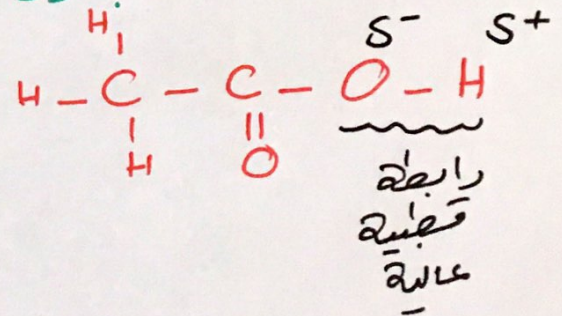 H S- S+
H - C - C - O - H
H O
رابطة
قطبية
عالية